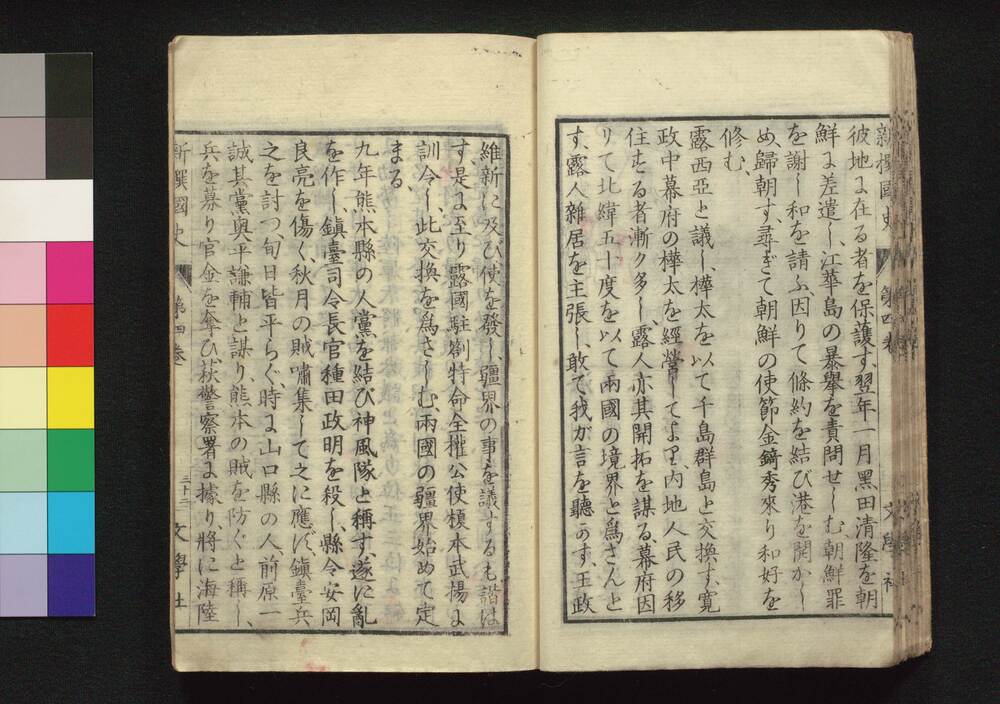 新撰國史 第四卷 文學社
彼地ニ在る者を保護す、翌年一月黑田清隆を朝
鮮に差遣し、江華島の暴擧を責問せしむ、朝鮮罪
を謝し和を請ふ、因りて條約を結び港を開かし
め、歸朝す、尋ぎて朝鮮の使節金錡秀來り和好を
修む、
露西亞と議し、樺太を以て千島群島と交換す、寬
政中幕府の樺太を經營してより内地人民の移
住する者漸々多し、露人亦其開拓を謀る、幕府因
りて北緯五十度を以て兩國の境界と爲さんと
す、露人雜居を主張し、敢て我が言を聽かず、王政
維新に及び、使を發し、疆界の事を議するも諧は
ず、是に至り露國駐劄特命全權公使榎本武揚に
訓令し、此交換を爲さしむ、兩國の疆界始めて定
まる、
九年熊本縣の人黨を結び神風隊と稱す、遂に亂
を作し、鎭臺司令長官種田政明を殺し、縣令安岡
良亮を傷く、秋月の賊嘯集して之に應ず、鎭臺兵
之を討つ、旬日皆平らぐ、時に山口縣の人、前原一
誠其黨奧平謙輔と謀り、熊本の賊を防ぐと稱し、
兵を募り官金を奪ひ、萩警察署に據り、將に海陸
新撰國史 第四卷 三十二 文學社